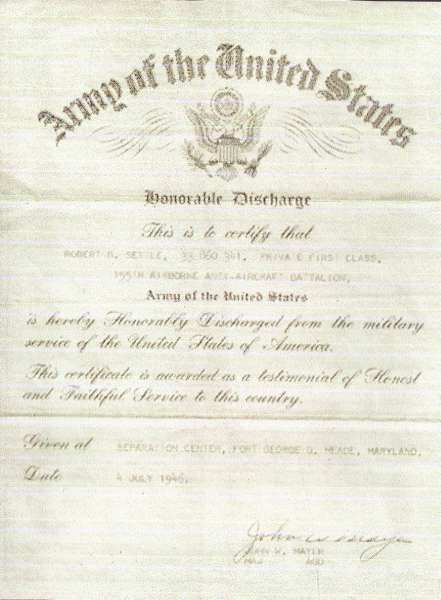 Army of the United States
Honorable Discharge
This is to certify that
ROBERT SETTLE, 33 060 341, PRIVATE FIRST CLASS,
155TH AIRBORNE ANTI-AIRCRAFT BATTALION,
Army of the United States
is hereby Honorably Discharged from the military
service of the United States of America.
This certificate is awarded as a testimonial of Honest
and Faithful Service to this country.
Given at SEPARATION CENTER, FORT GEORGE G. MEADE, MARYLAND.
Date 4 JULY 1946.
John W Mayer
JOHN W. MAYER
MAJ AGD